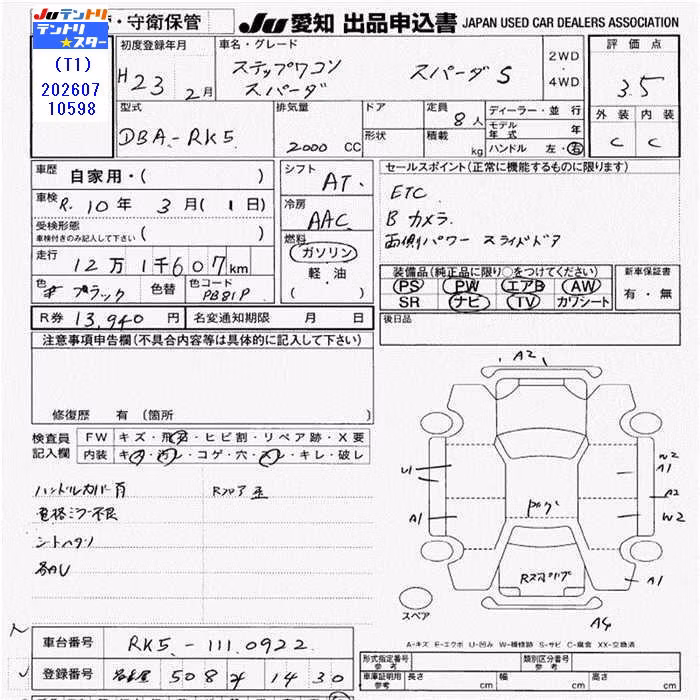 Juテントリ
テントリ★スター
(T1)
202607
10598
・守衛保管
Ju 愛知 出品申込書 JAPAN USED CAR DEALERS ASSOCIATION
初度登録年月
H23 2月
車名・グレード
ステップワゴン スパーダS
スパーダ
2WD
・
4WD
評価点
3.5
外装 内装
C C
型式
DBA-RK5
排気量
2000 CC
ドア
形状
定員 8人
積載 kg
ディーラー・並行
モデル年式 年
ハンドル 左・右
車歴 自家用・( )
車検 R. 10年 3月( 1日)
受検形態
車検付きのみ記入して下さい ( )
走行 12万1千607km
色 ブラック 色替 色コード PB81P
シフト AT.
冷房 AAC
燃料
ガソリン
軽・油
( )
セールスポイント(正常に機能するものに限ります)
ETC
Bカメラ.
両側パワースライドドア
装備品(純正品に限り○をつけてください)
PS PW エアB AW
SR ナビ TV カワシート
新車保証書
有・無
R券 13,940 円 名変通知期限 月 日
後日品
注意事項申告欄(不具合内容等は具体的に記入して下さい)
修復歴 有 (箇所 )
検査員記入欄
FW キズ・飛石・ヒビ割・リペア跡・X要
内装 キズ・汚レ・コゲ・穴・スレ・キレ・破レ
ハンドルカバー有
電格ミラー不良
シートハタリ
A2
U1
A1
W2
A1
A2
W2
A1
A4
スペア
A-キズ E-エクボ U-凹み W-補修跡 S-サビ C-腐食 XX-交換済
車台番号 RK5-1110922
登録番号 名古屋 508 1430
形式指定番号 参考
類別区分番号 参考
車庫証明用 参考 長さ cm 幅 cm 高さ cm